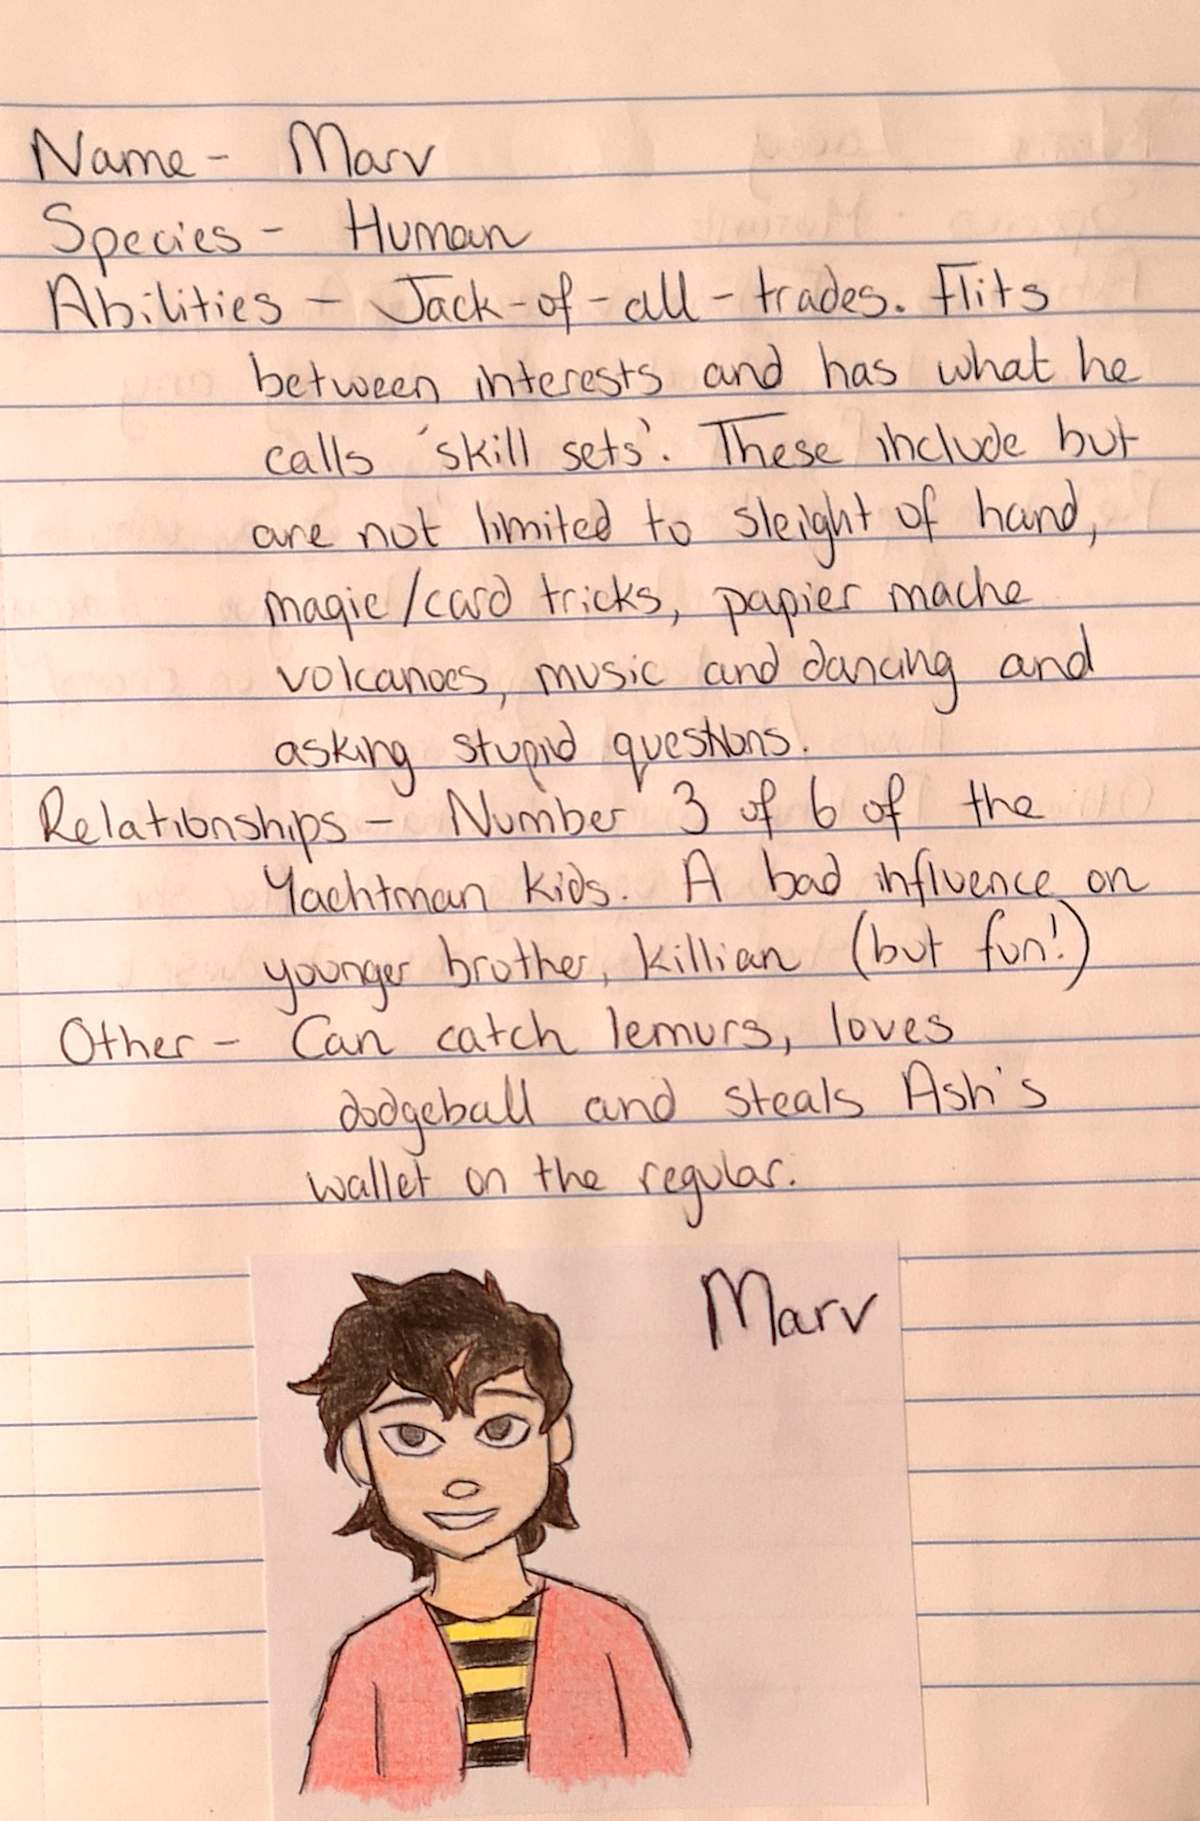 Name - Marv
Species - Human
Abilities - Jack-of-all-trades. Flits
between interests and has what he
calls 'skill sets'. These include but
are not limited to sleight of hand,
magic/card tricks, papier mache
volcanoes, music and dancing and
asking stupid questions.
Relationships - Number 3 of 6 of the
Yachtman kids. A bad influence on
younger brother, Killian (but fun!)
Other - Can catch lemurs, loves
dodgeball and steals Ash's
wallet on the regular.
Marv